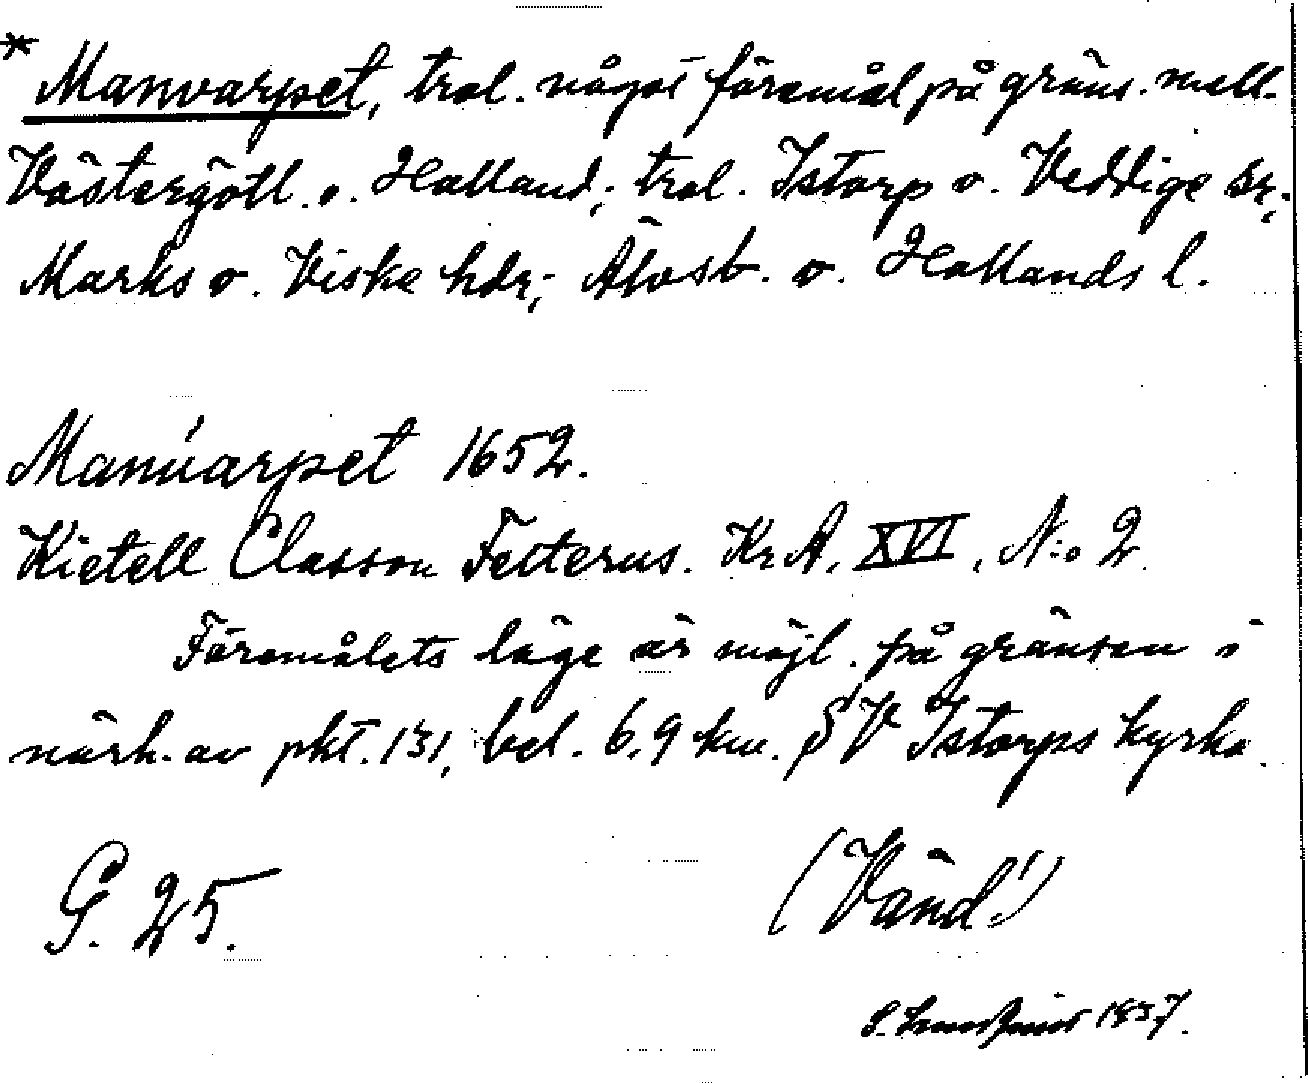 * Manvarpet, trol. något föremål på gräns. mell.
Västergötl. o. Halland; trol. Istorp o. Veddige snr;
Marks o. Viske hdr; Älvsb. o. Hallands l.
Manúarpet 1652.
Kietell Classon Felterus. Kr. A. XVI, N:o 2.
Föremålets läge är möjl. på gränsen i
närh. av pkt. 131, bel. 6,9 km. SV Istorps kyrka.
G. 25.
(Vänd!)
S.